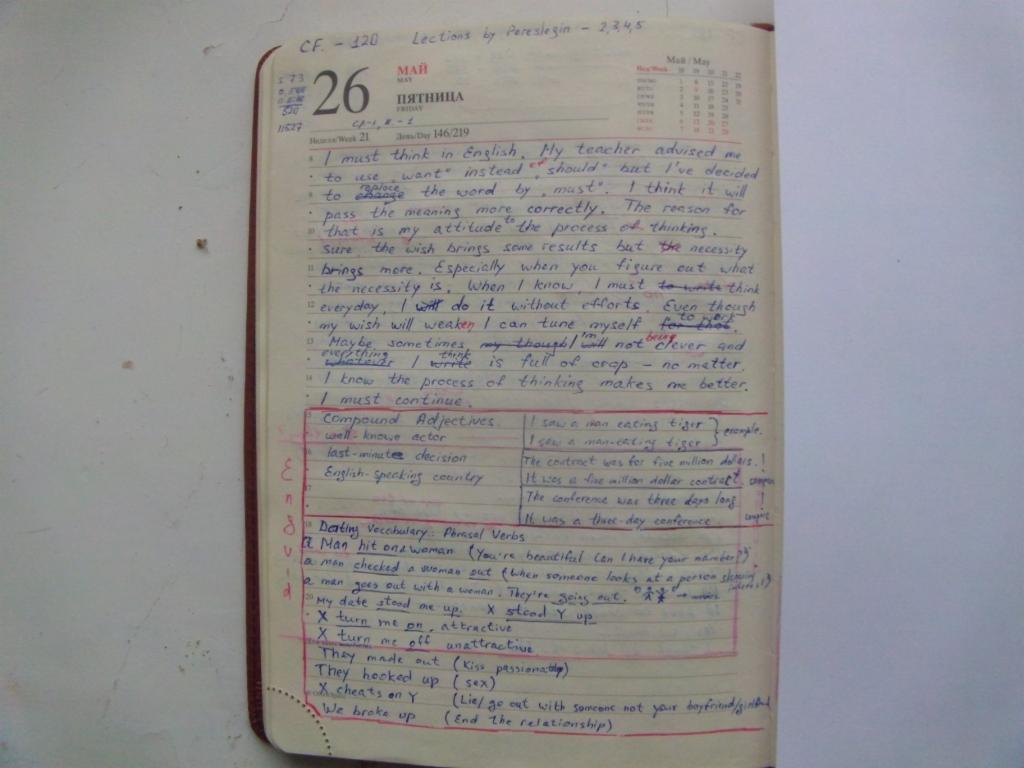 CF. - 120 Lections by Pereslegin - 2,3,4,5
26
МАЙ
MAY
ПЯТНИЦА
FRIDAY
Май / May
Нед/Week 18 19 20 21 22
Неделя/Week 21 День/Day 146/219
8 I must think in English. My teacher advised me
to use "want" instead of "should" but I've decided
9 to change replace the word by "must". I think it will
pass the meaning more correctly. The reason for
10 that is my attitude to the process of thinking.
Sure, the wish brings some results but the necessity
11 brings more. Especially when you figure out what
the necessity is. When I know, I must to write think
12 everyday, I will do it without efforts. Even though
my wish will weaken I can tune myself for that to work.
13 Maybe sometimes my though I will I'm not being clever and
whatever everything I write think is full of crap - no matter.
14 I know the process of thinking makes me better.
I must continue.
15 Compound Adjectives
well-knowe actor
16 last-minute decision
English-speaking country
I saw a man eating tiger
I saw a man-eating tiger
example.
The contract was for five million dollars. !
It was a five million dollar contract
The conference was three days long !
It was a three-day conference
17
Engvid
18 Dating Vocabulary: Phrasal Verbs
a Man hit on a woman (You're beautiful Can I have your number?)
a man checked a woman out (When someone looks at a person showing interest)
a man goes out with a woman. They're going out. → movies
20 My date stood me up. X stood Y up
X turn me on. attractive
X turn me off unattractive
They made out (Kiss passionately)
They hooked up (sex)
X cheats on Y (Lie/ go out with someone not your boyfriend/girlfriend
We broke up (End the relationship)